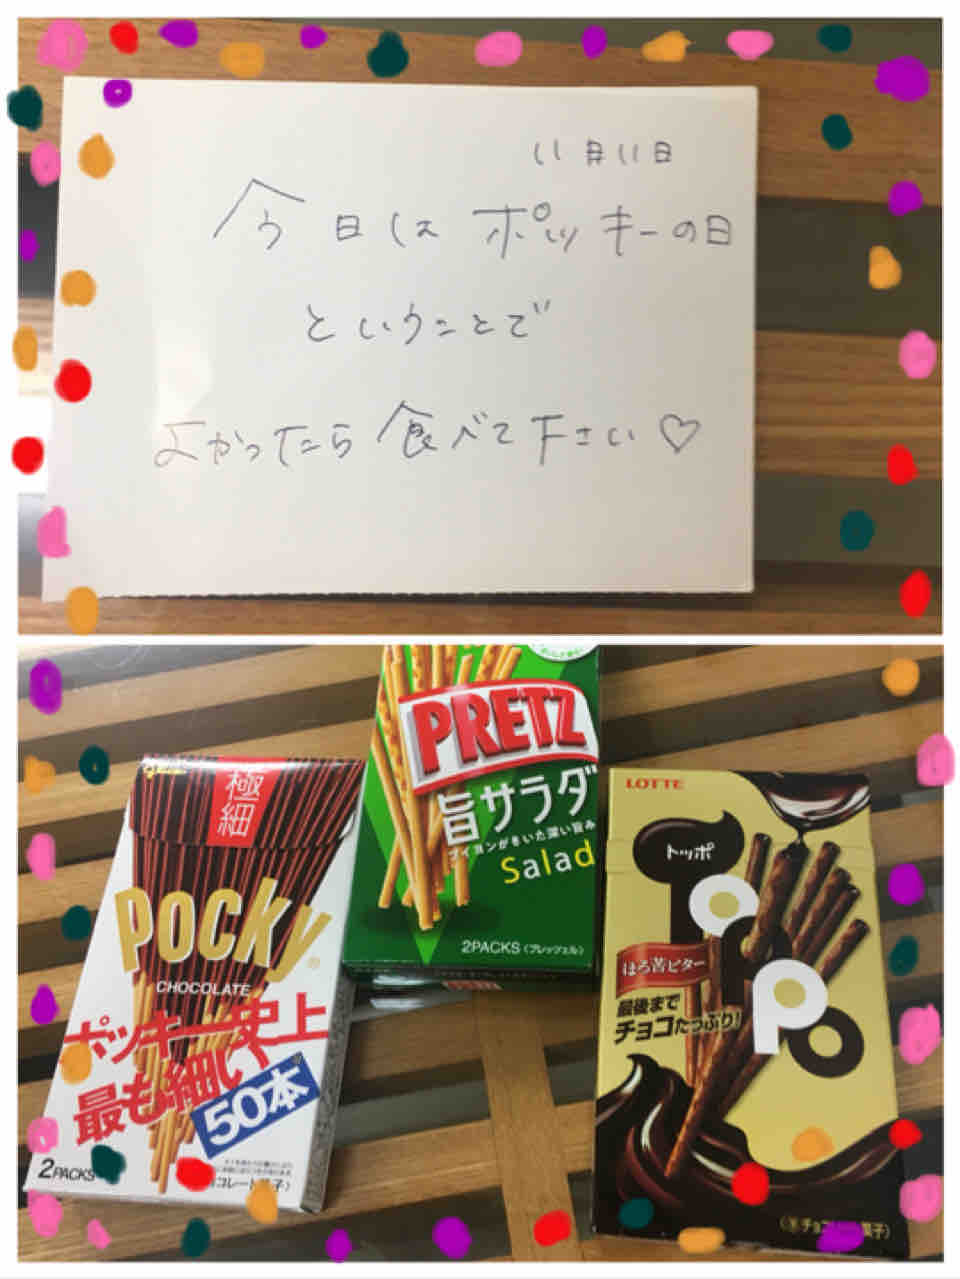 11月11日
今日は ポッキーの日
ということで
よかったら 食べて下さい♡
極細
Pocky
CHOCOLATE
ポッキー史上
最も細い
50本
2PACKS
PRETZ
旨サラダ
ブイヨンがきいた深い旨み
Salad
2PACKS〈プレッツェル〉
LOTTE
トッポ
Toppo
ほろ苦ビター
最後まで
チョコたっぷり!